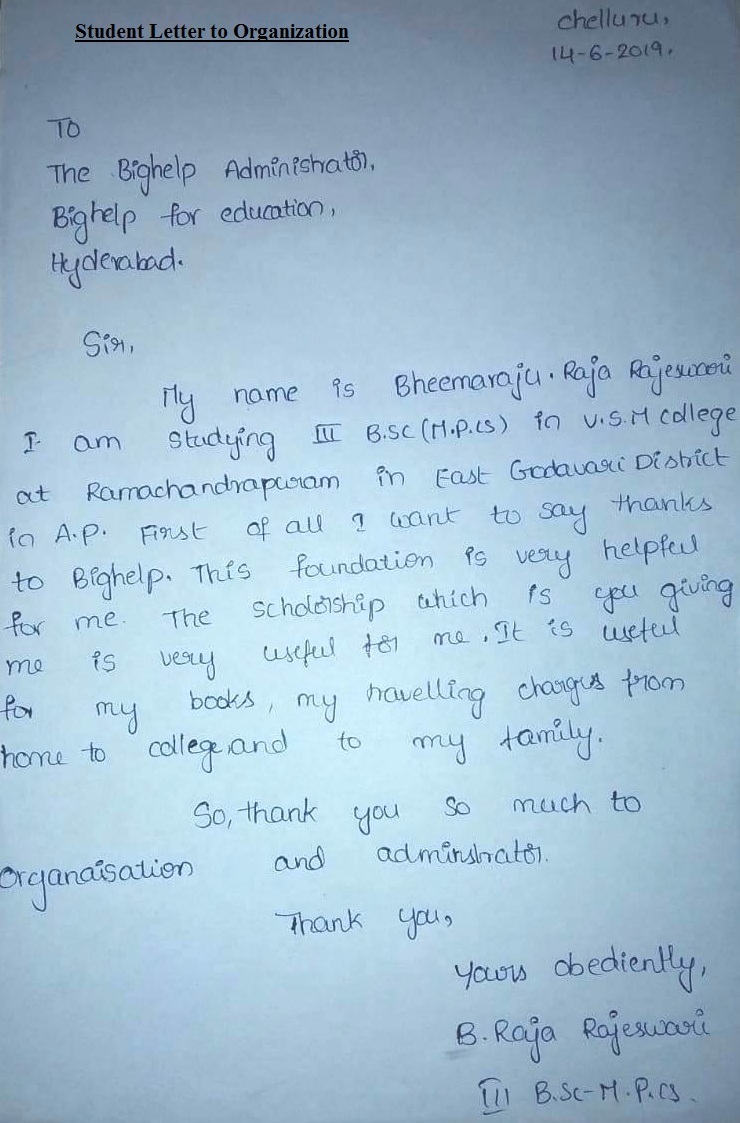 Student Letter to Organization
chelluru,
14-6-2019.
To
The Bighelp Administrator,
Bighelp for education,
Hyderabad.
Sir,
My name is Bheemaraju. Raja Rajeswari
I am studying III B.SC (M.P.CS) in V.S.M college
at Ramachandrapuram in East Godavari District
in A.P. First of all I want to say thanks
to Bighelp. This foundation is very helpful
for me. The scholorship which is you giving
me is very useful for me. It is useful
for my books, my travelling charges from
home to college, and to my family.
So, thank you so much to
Organaisation and adminstrator.
Thank you,
Yours obediently,
B. Raja Rajeswari
III B.Sc-M.P.CS.